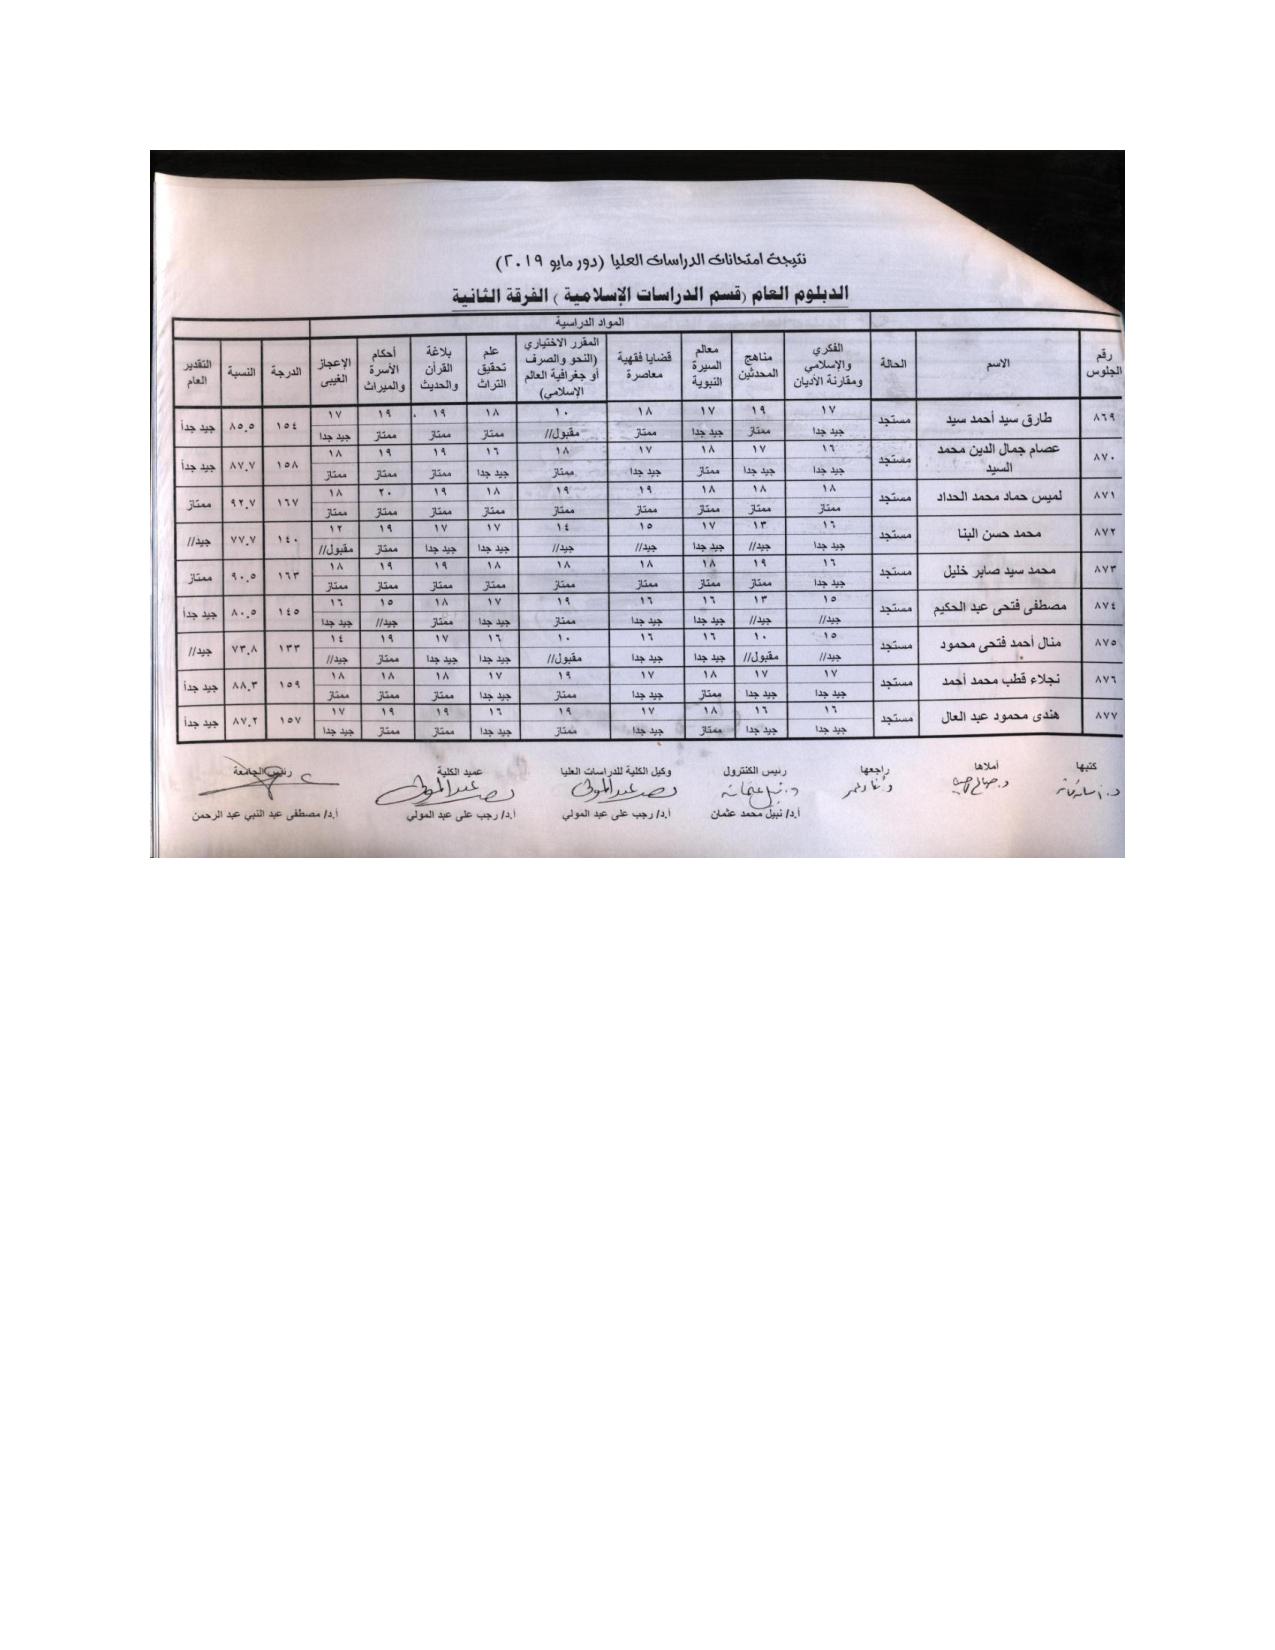 نتيجة امتحانات الدراسات العليا (دور مايو ٢٠١٩)
الدبلوم العام (قسم الدراسات الإسلامية) الفرقة الثانية
المواد الدراسية
رقم الجلوس الاسم الحالة الفكري والإسلامي ومقارنة الأديان مناهج المحدثين معالم السيرة النبوية قضايا فقهية معاصرة المقرر الاختياري (النحو والصرف أو جغرافية العالم الإسلامي) علم تحقيق التراث بلاغة القرآن والحديث أحكام الأسرة والميراث الإعجاز الغيبى الدرجة النسبة التقدير العام
٨٦٩ طارق سيد أحمد سيد مستجد ١٧ ١٩ ١٧ ١٨ ١٠ ١٨ ١٩ ١٩ ١٧ ١٥٤ ٨٥.٥ جيد جداً
جيد جدا ممتاز جيد جدا ممتاز مقبول// ممتاز ممتاز ممتاز جيد جدا
٨٧٠ عصام جمال الدين محمد السيد مستجد ١٦ ١٧ ١٨ ١٧ ١٨ ١٦ ١٩ ١٩ ١٨ ١٥٨ ٨٧.٧ جيد جداً
جيد جدا جيد جدا ممتاز جيد جدا ممتاز جيد جدا ممتاز ممتاز ممتاز
٨٧١ لميس حماد محمد الحداد مستجد ١٨ ١٨ ١٨ ١٩ ١٩ ١٨ ١٩ ٢٠ ١٨ ١٦٧ ٩٢.٧ ممتاز
ممتاز ممتاز ممتاز ممتاز ممتاز ممتاز ممتاز ممتاز ممتاز
٨٧٢ محمد حسن البنا مستجد ١٦ ١٣ ١٧ ١٥ ١٤ ١٧ ١٧ ١٩ ١٢ ١٤٠ ٧٧.٧ جيد//
جيد جدا جيد// جيد جدا جيد// جيد// جيد جدا جيد جدا ممتاز مقبول//
٨٧٣ محمد سيد صابر خليل مستجد ١٦ ١٩ ١٨ ١٨ ١٨ ١٨ ١٩ ١٩ ١٨ ١٦٣ ٩٠.٥ ممتاز
جيد جدا ممتاز ممتاز ممتاز ممتاز ممتاز ممتاز ممتاز ممتاز
٨٧٤ مصطفى فتحى عبد الحكيم مستجد ١٥ ١٣ ١٦ ١٦ ١٩ ١٧ ١٨ ١٥ ١٦ ١٤٥ ٨٠.٥ جيد جداً
جيد// جيد// جيد جدا جيد جدا ممتاز جيد جدا ممتاز جيد// جيد جدا
٨٧٥ منال أحمد فتحى محمود مستجد ١٥ ١٠ ١٦ ١٦ ١٠ ١٦ ١٧ ١٩ ١٤ ١٣٣ ٧٣.٨ جيد//
جيد// مقبول// جيد جدا جيد جدا مقبول// جيد جدا جيد جدا ممتاز جيد//
٨٧٦ نجلاء قطب محمد أحمد مستجد ١٧ ١٧ ١٨ ١٧ ١٩ ١٧ ١٨ ١٨ ١٨ ١٥٩ ٨٨.٣ جيد جداً
جيد جدا جيد جدا ممتاز جيد جدا ممتاز جيد جدا ممتاز ممتاز ممتاز
٨٧٧ هندى محمود عبد العال مستجد ١٦ ١٦ ١٨ ١٧ ١٩ ١٦ ١٩ ١٩ ١٧ ١٥٧ ٨٧.٢ جيد جداً
جيد جدا جيد جدا ممتاز جيد جدا ممتاز جيد جدا ممتاز ممتاز جيد جدا
كتبها أملاها راجعها رئيس الكنترول وكيل الكلية للدراسات العليا عميد الكلية رئيس الجامعة
أ.د/ نبيل محمد عثمان أ.د/ رجب على عبد المولي أ.د/ رجب على عبد المولي أ.د/ مصطفى عبد النبي عبد الرحمن